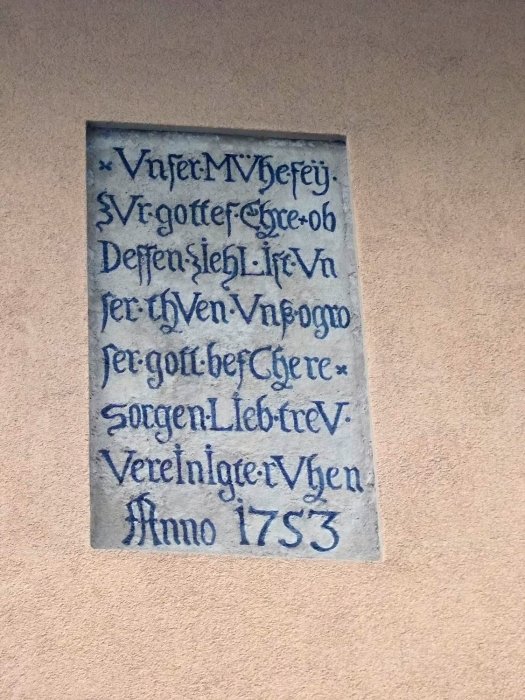 × Vnſer·MVhe·ſeÿ·
ZVr·gotteſ·Ehre+ob
Deſſen·ZiehL·Iſt·Vn
ſer·thVen·Vnß·ogro
ſer·gott·beſChere×
sorgen·LIeb·treV·
VereInIgte·rVhen
Anno 1753